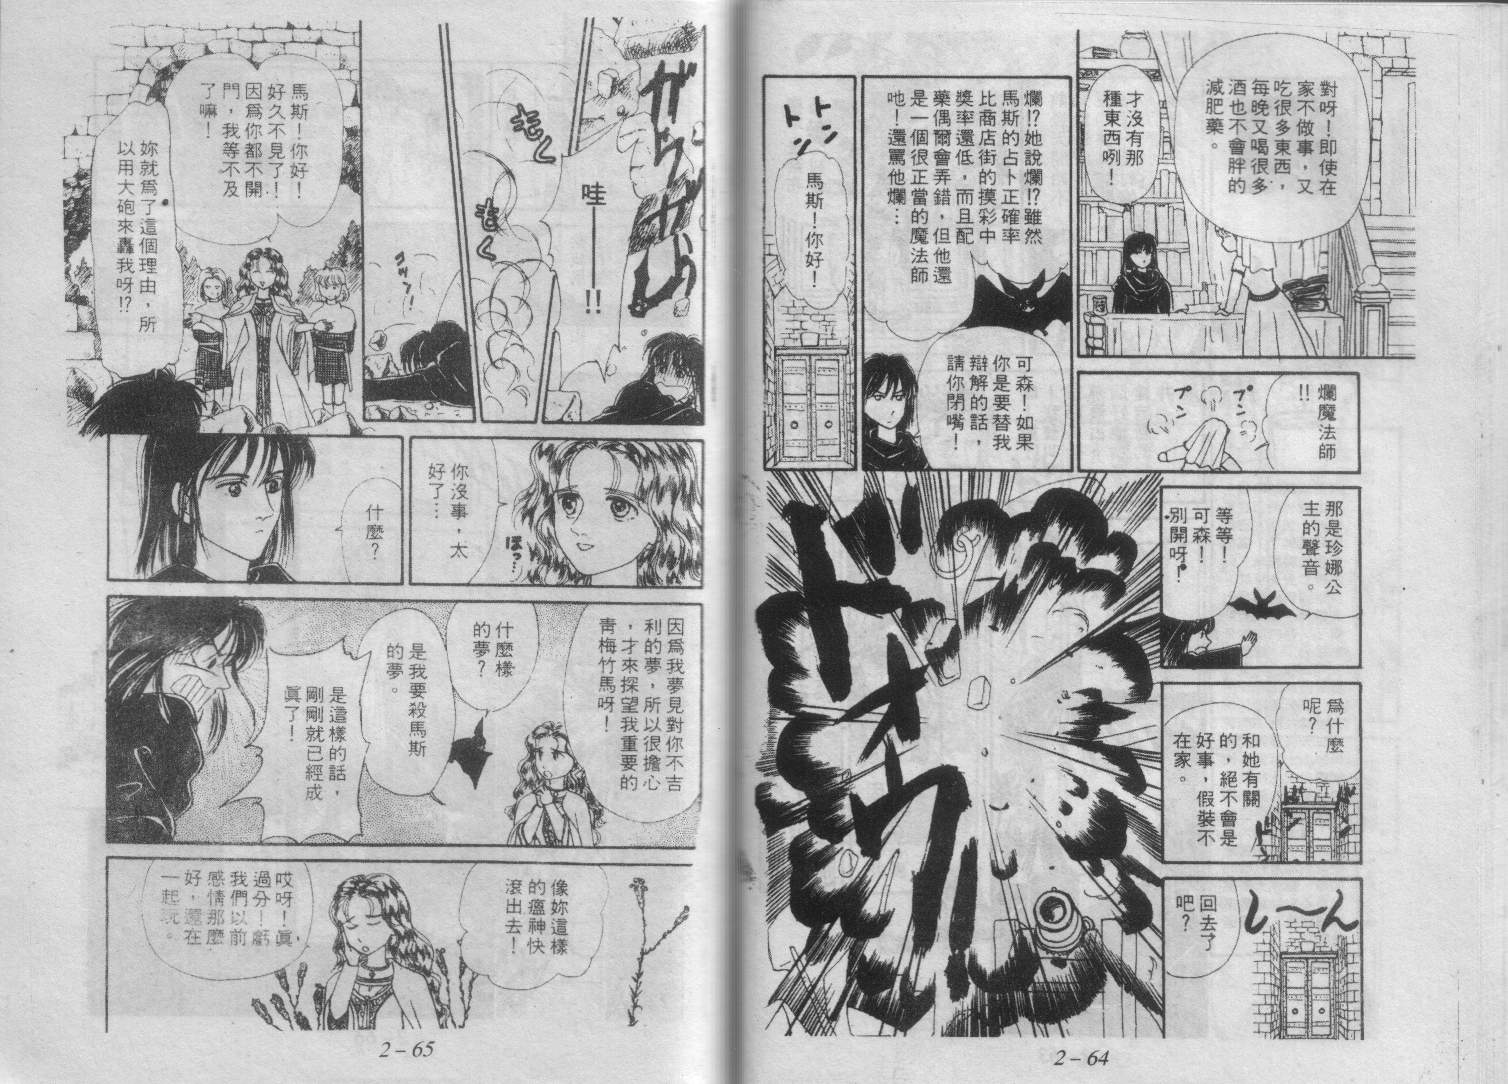 對呀！即使在
家不做事，又
吃很多東西，
每晚又喝很多
酒也不會胖的
減肥藥。
才沒有那
種東西咧！
爛魔法師
!!
プンプン
爛!?她說爛!?雖然
馬斯的占卜正確率
比商店街的摸彩中
獎率還低，而且配
藥偶爾會弄錯，但他還
是一個很正當的魔法師
吔！還罵他爛…
可森！如果
你是要替我
辯解的話，
請你閉嘴！
トントン
馬斯！你好！
那是珍娜公
主的聲音。
等等！
可森！
別開呀！
為什麼
呢？
和她有關
的，絕不會是
好事，假裝不
在家。
し～ん
回去了
吧？
ドオウ
2－64
ガラッガラッ
哇——!!
もくもく
コツン！
馬斯！你好！
好久不見了！
因為你都不開
門，我等不及
了嘛！
妳就為了這個理由，所
以用大砲來轟我呀!?
你沒事，太
好了…
ほっ…
什麼？
因為我夢見對你不吉
利的夢，所以很擔心
，才來探望我重要的
青梅竹馬呀！
什麼樣
的夢？
是我要殺馬斯
的夢。
是這樣的話，
剛剛就已經成
真了！
像妳這樣
的瘟神快
滾出去！
哎呀！真
過分！虧
我們以前
感情那麼
好，還在
一起玩。
2－65